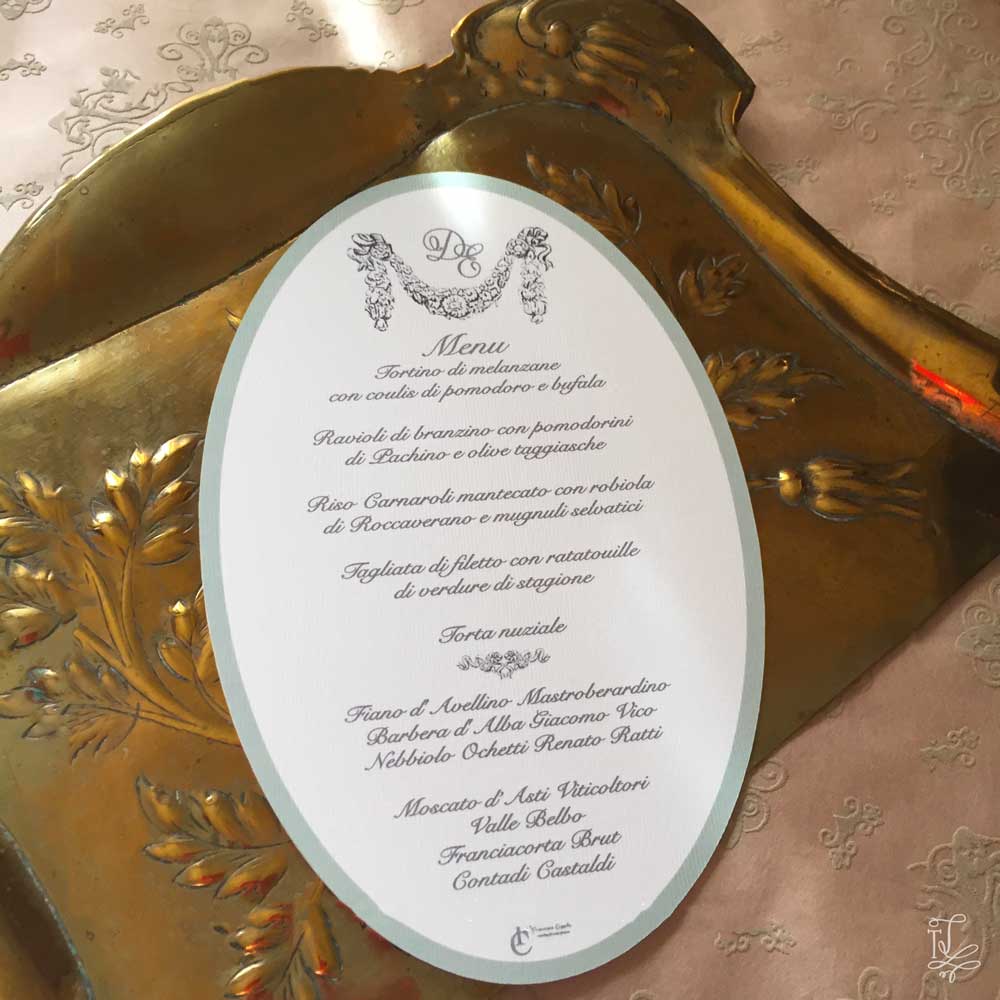 DE
Menu
Tortino di melanzane
con coulis di pomodoro e bufala
Ravioli di branzino con pomodorini
di Pachino e olive taggiasche
Riso Carnaroli mantecato con robiola
di Roccaverano e mugnuli selvatici
Tagliata di filetto con ratatouille
di verdure di stagione
Torta nuziale
Fiano d' Avellino Mastroberardino
Barbera d' Alba Giacomo Vico
Nebbiolo Ochetti Renato Ratti
Moscato d' Asti Viticoltori
Valle Belbo
Franciacorta Brut
Contadi Castaldi